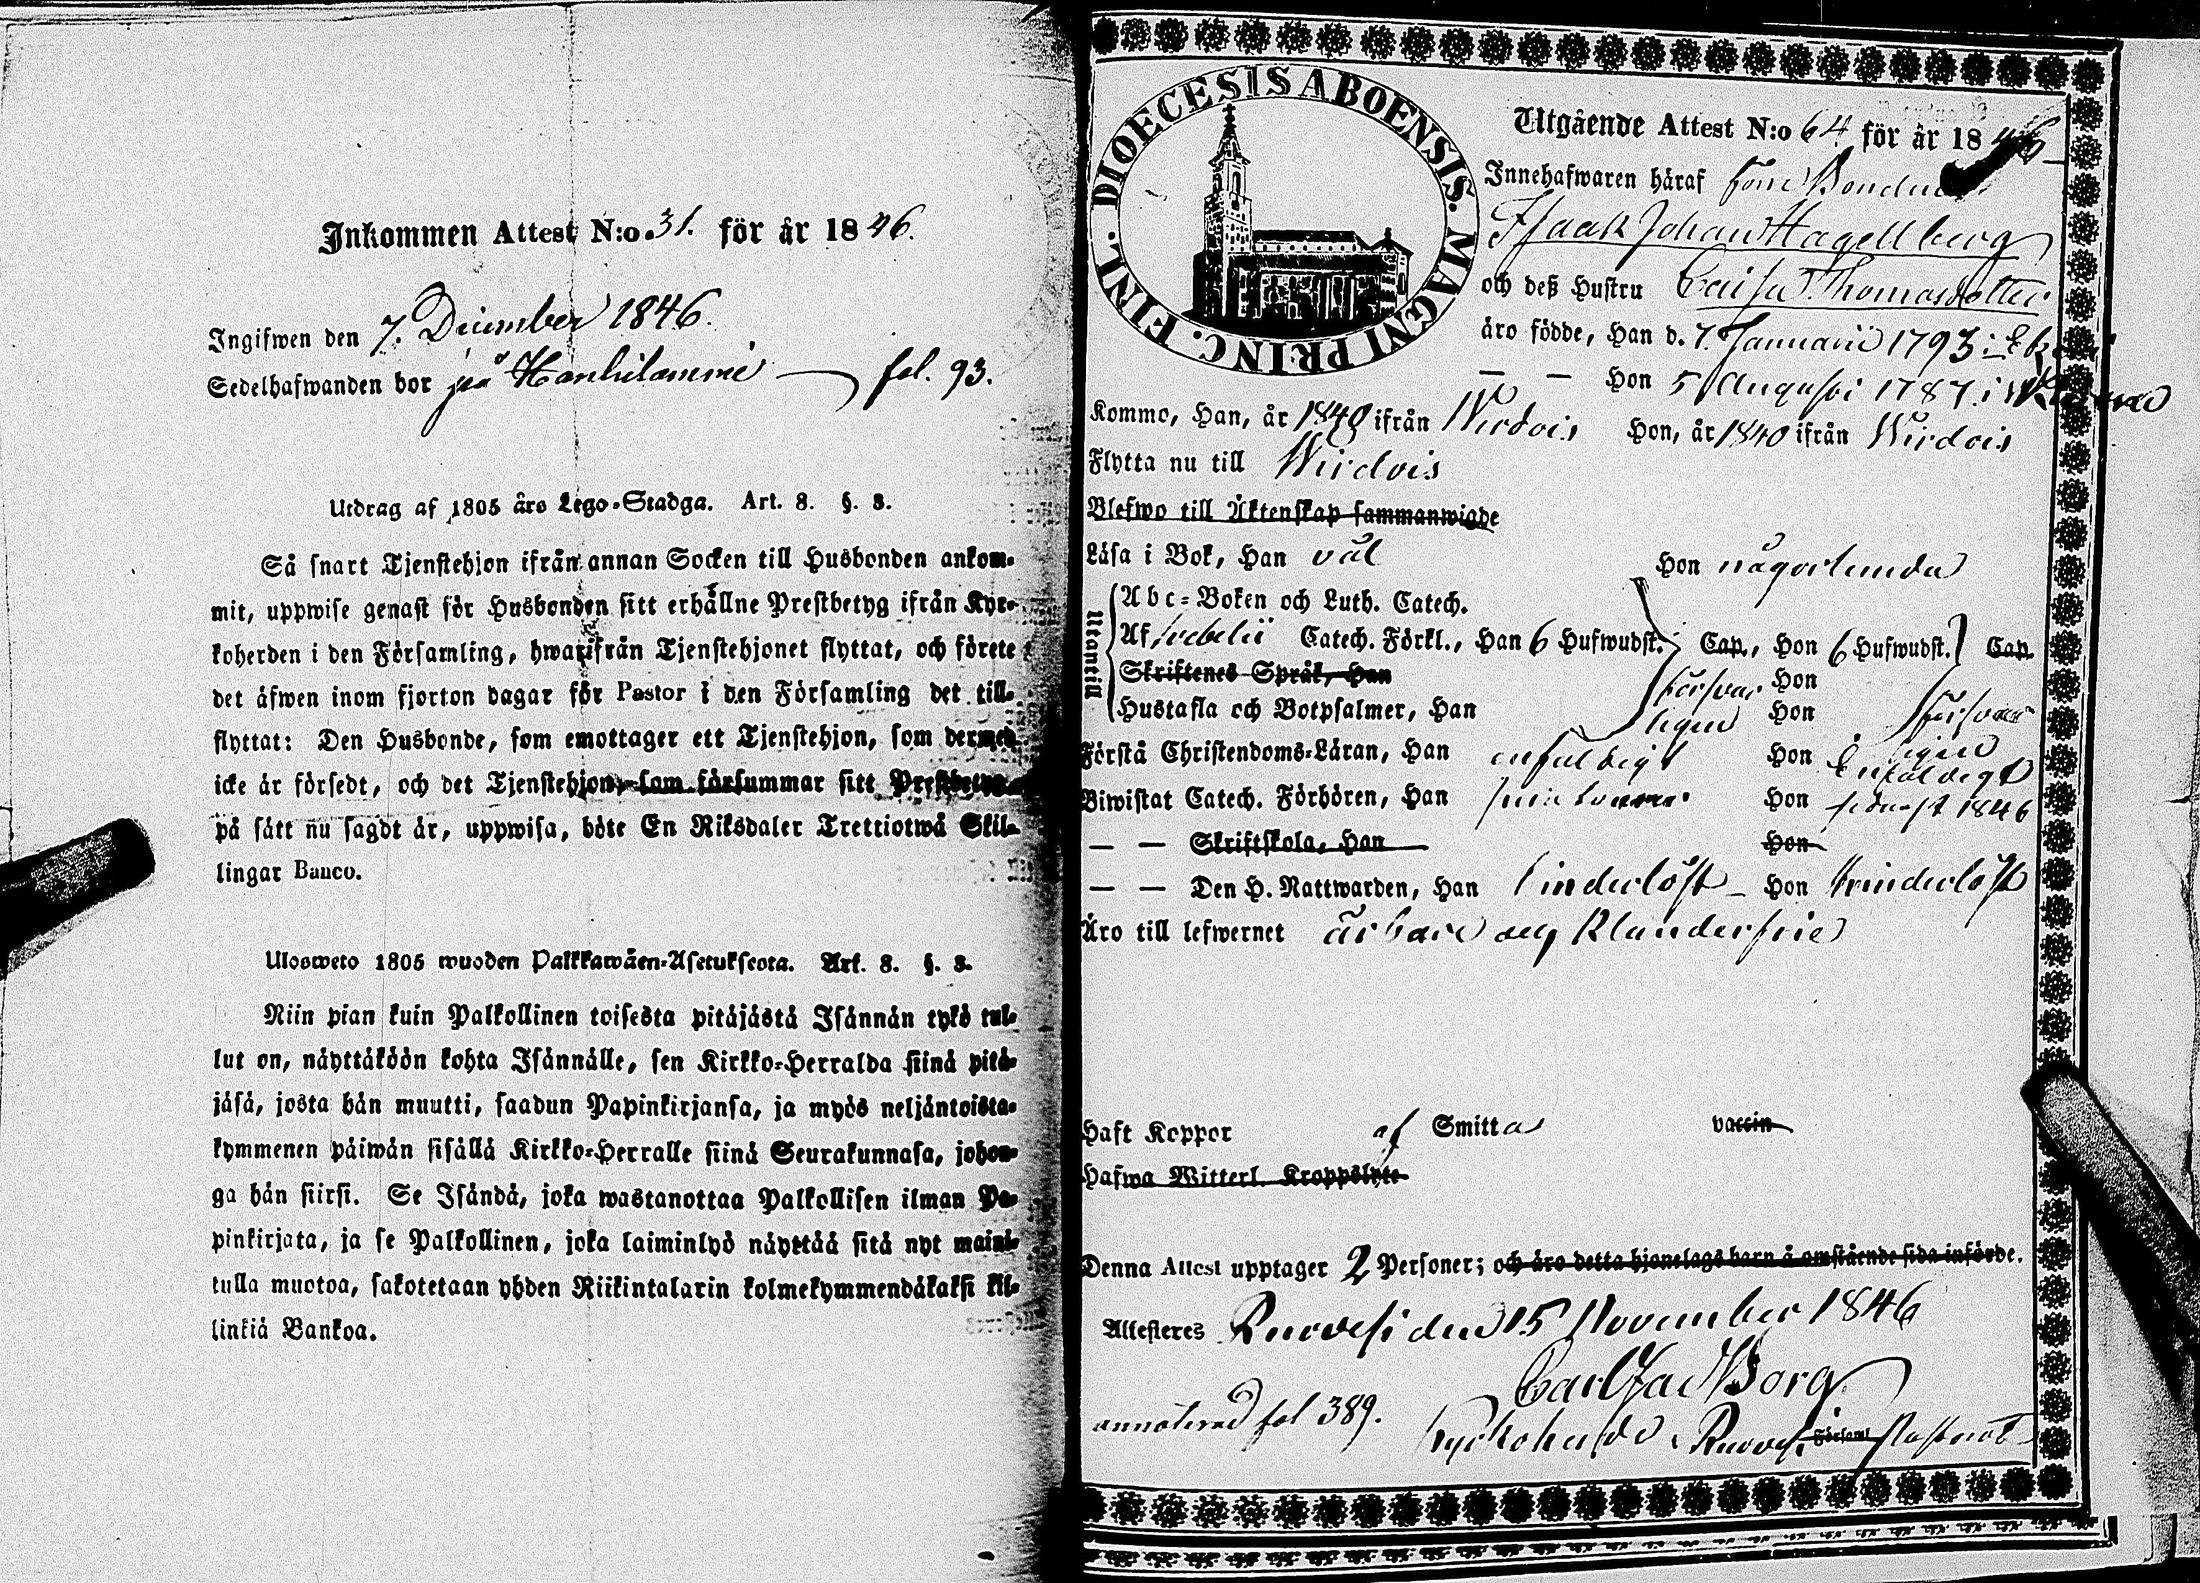 Inkommen Attest N:o 31. för år 1846.
Ingifwen den 7. December 1846.
Sedelhafwanden bor på fol. 93.
Utdrag af 1805 års Lego-Stadga. Art. 8. §. 3.
Så snart Tjenstehjon ifrån annan Socken till Husbonden ankom-
mit, uppwise genast för Husbonden sitt erhållne Prestbetyg ifrån Kyr-
koherden i den Församling, hwarifrån Tjenstehjonet flyttat, och förete
det äfwen inom fjorton dagar för Pastor i den Församling det till-
flyttat: Den Husbonde, som emottager ett Tjenstehjon, som dermed
icke är försedt, och det Tjenstehjon, som försummar sitt Prestbetyg
på sätt nu sagdt är, uppwisa, böte En Riksdaler Trettiotwå Skil-
lingar Banco.
Ulosweto 1805 wuoden Palkkawäen-Asetuksesta. Art. 8. §. 3.
Niin pian kuin Palkollinen toisesta pitäjästä Isännän tykö tul-
lut on, näyttäköön kohta Isännälle, sen Kirkko-Herralda siinä pitä-
jäsä, josta hän muutti, saadun Papinkirjansa, ja myös neljäntoista-
kymmenen päiwän sisällä Kirkko-Herralle siinä Seurakunnasa, johon-
ga hän siirsi. Se Isändä, joka wastanottaa Palkollisen ilman Pa-
pinkirjata, ja se Palkollinen, joka laiminlyö näyttää sitä nyt maini-
tulla muotoa, sakotetaan yhden Riikintalarin kolmekymmendäkaksi kil-
linkiä Bankoa.
DIOECESIS ABOENSIS. MAGNI PRINC. FINL.
Utgående Attest N:o 64 för år 1846
Innehafwaren häraf förre Bonden
Isaak Johan Hagellberg
och deß Hustru Caisa Thomasdotter
äro födde, Han d. 7. Januarii 1793 i
— — Hon 5 Augusti 1787. i
Kommo, Han, år 1840 ifrån Wirdois Hon, år 1840 ifrån Wirdois
Flytta nu till Wirdois
Blefwo till Äktenskap sammanwigde
Läsa i Bok, Han väl Hon någorlunda
Utantill
Abc-Boken och Luth. Catech.
Af Svebelii Catech. Förkl., Han 6 Hufwudst. Cap., Hon 6 Hufwudst. Cap.
Skriftenes Språk, Han Hon
Hustafla och Botpsalmer, Han försvarligen Hon försvarligen
Förstå Christendoms-Läran, Han enfaldigt Hon Enfaldigt
Biwistat Catech. Förhören, Han Hon sednast 1846
— — Skriftskola, Han Hon
— — Den H. Nattwarden, Han hinderlöst Hon hinderlöst
Äro till lefwernet ärbare och klanderfrie
Haft Koppor af Smitta vaccin
Hafwa Witterl. Kroppslyte
Denna Attest upptager 2 Personer; och äro detta hjonelags barn å omstående sida införde.
Attesteres Ruovesi den 15 November 1846
Carl Borg
annoterad fol 389.
Kyrkoherde i Ruovesi Församl Pastorat